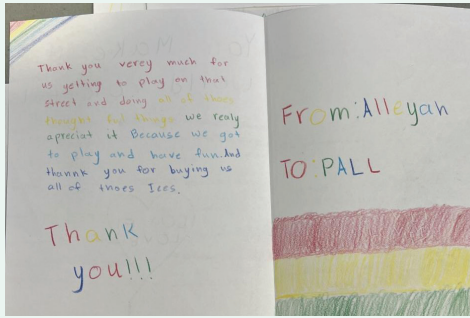 Thank you verey much for
us getting to play on that
street and doing all of thoes
thought ful things we realy
apreciat it Because we got
to play and have fun. And
thannk you for buying us
all of thoes Ices.
Thank
you!!!
From: Alleyah
TO: PALL